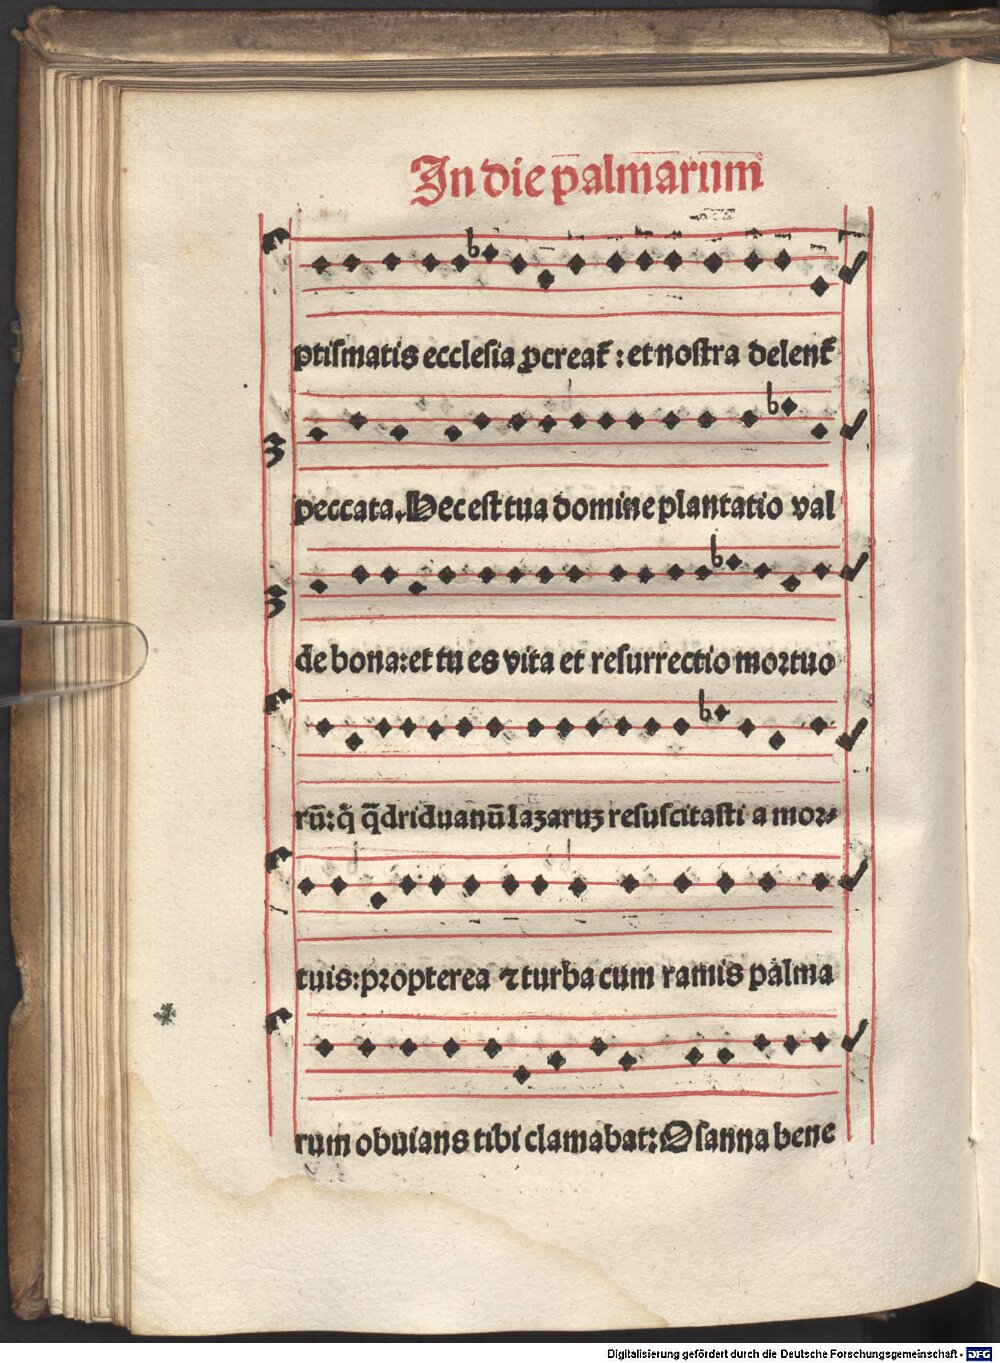 In die palmarum
ptiſmatis eccleſia ꝓcreat᷑ : et noſtra delent᷑
peccata. Hec eſt tua domine plantatio val
de bona: et tu es vita et reſurrectio moꝛtuo
rū: q̇ q̄driduanū lazaruꝫ reſuſcitaſti a moꝛ⸗
tuis: pꝛopterea ⁊ turba cum ramis palma
rum obuians tibi clamabat: Oſanna bene
Digitalisierung gefördert durch die Deutsche Forschungsgemeinschaft - DFG